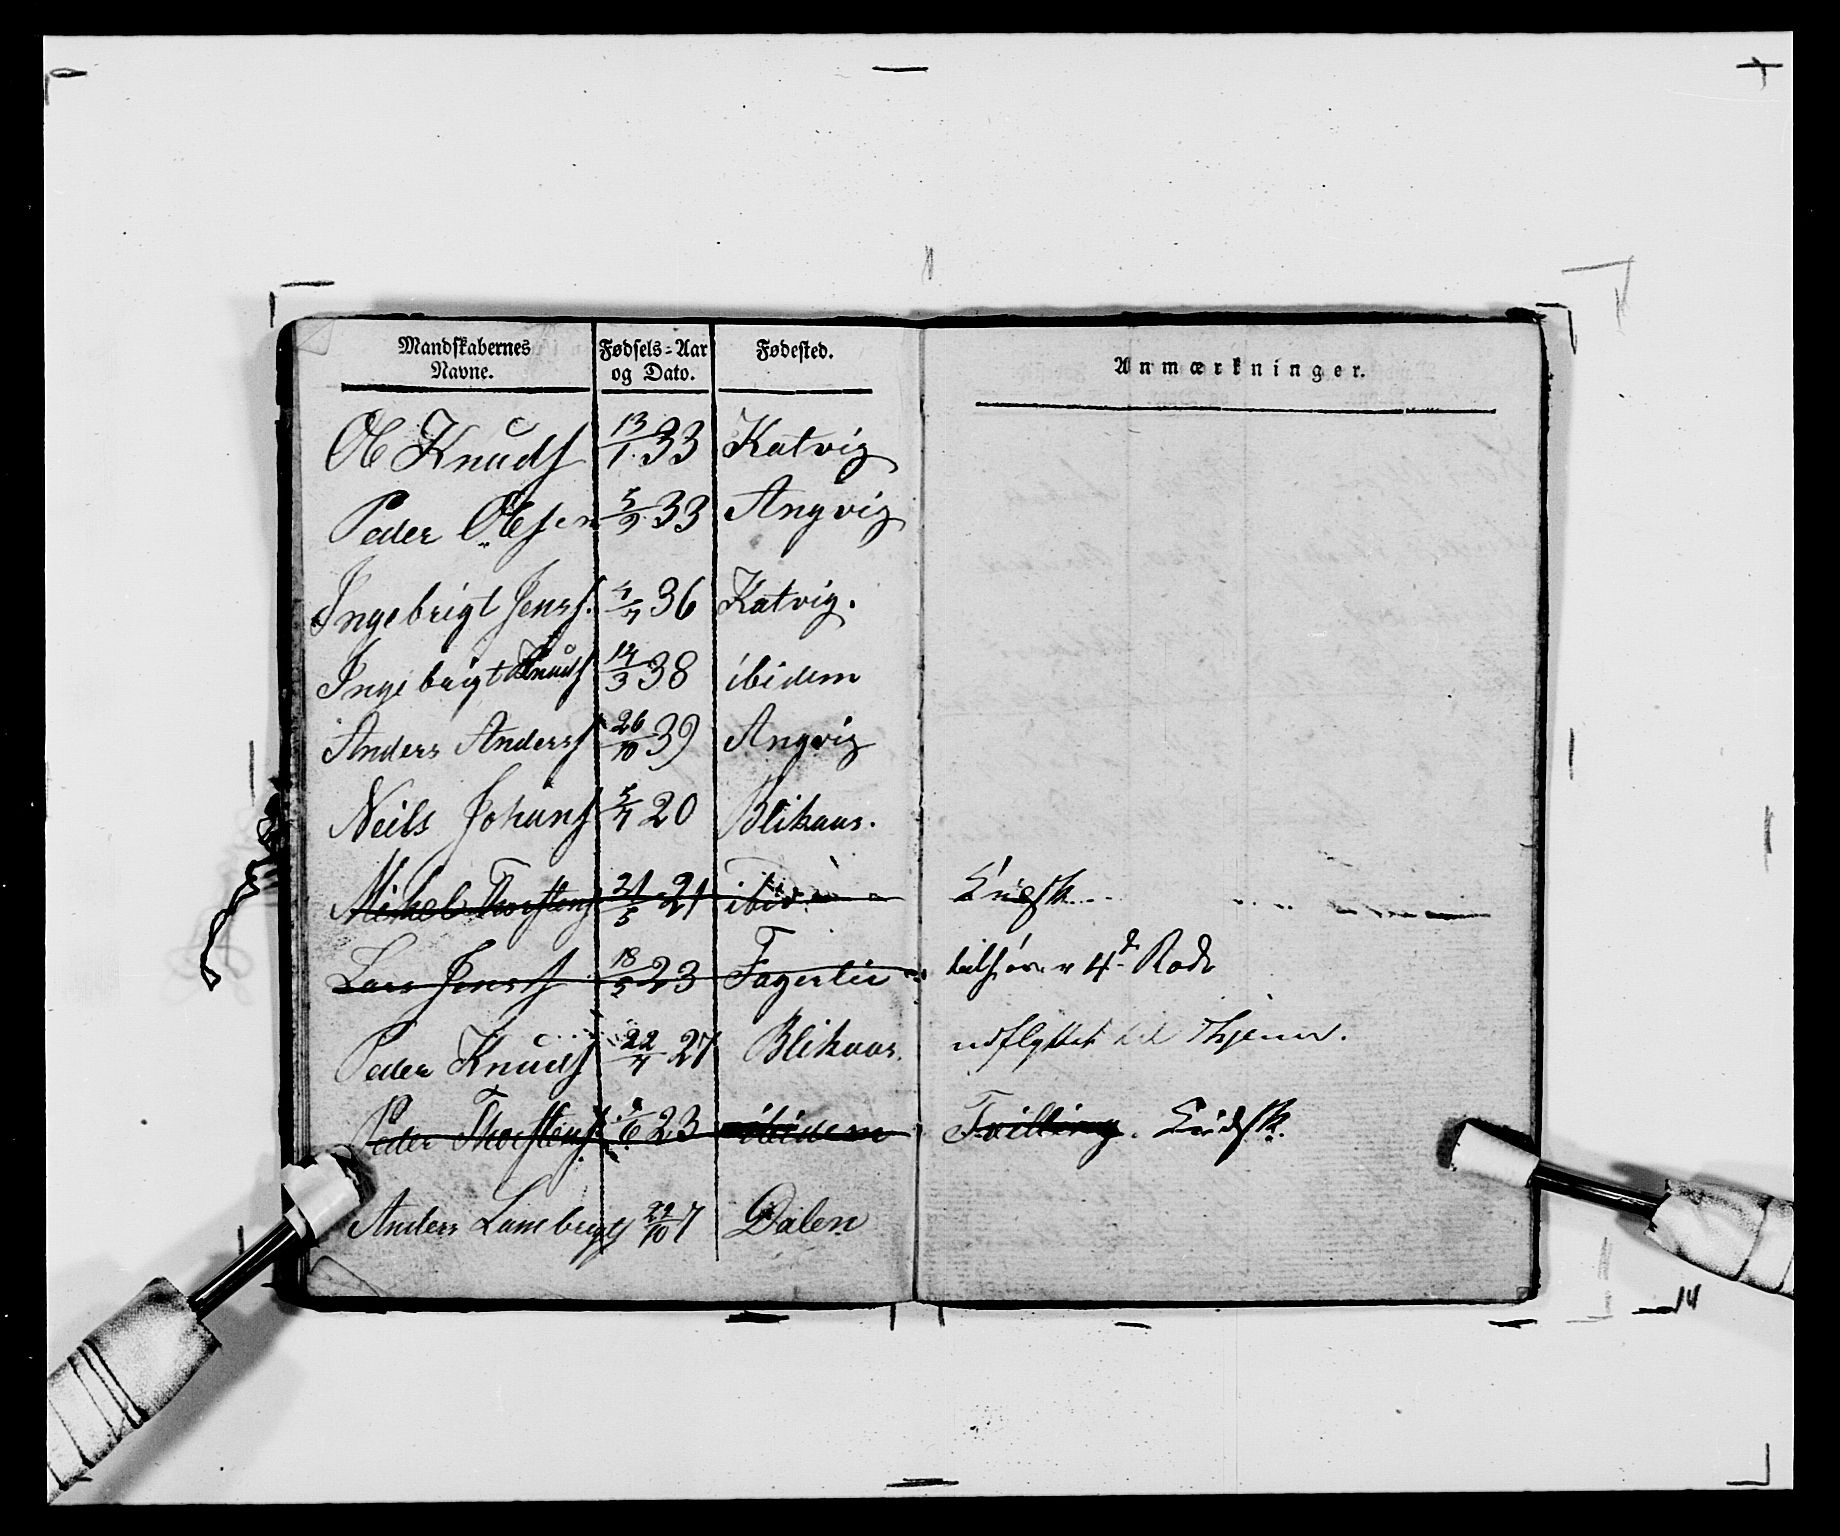 Mandskabernes Navne. Fødsels-Aar og Dato. Fødested. Anmærkninger.
Ole Knuds 13/1 33 Katvig
Peder Olesen 5/9 33 Angvig
Ingebrigt Jens. 36 Katvig.
Ingebrigt Knuds 14/3 38 ibidem
Anders Anders 26/10 39 Angvig
Neils Johans 5/7 20 Blikaas.
Mikel Thorstens 21/5 21 ibid
Lars Jens 18/5 23 Fagerlie 4d Rode
Peder Knuds 22/7 27 Blikaas. udflyttet til
Peder Thorstens 23 ibidem Tvilling.
Anders Lambregts 22/10 7 Dalen
14